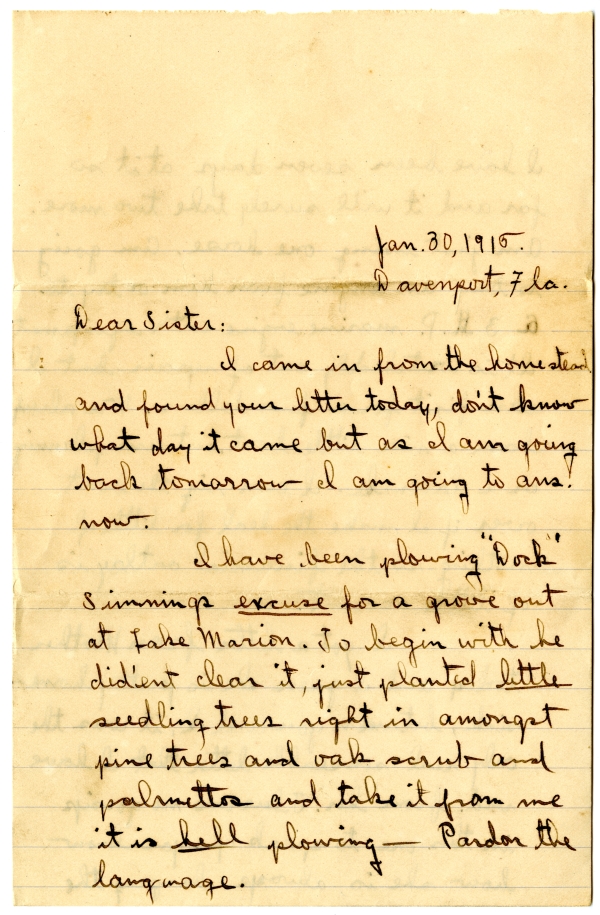 Jan. 30, 1915.
Davenport, Fla.
Dear Sister:
I came in from the homestead
and found your letter today, don't know
what day it came but as I am going
back tomorrow I am going to ans.
now.
I have been plowing "Dock"
Simmings excuse for a grove out
at Lake Marion. To begin with he
did'ent clear it, just planted little
seedling trees right in amongst
pine trees and oak scrub and
palmettos and take it from me
it is hell plowing — Pardon the
language.